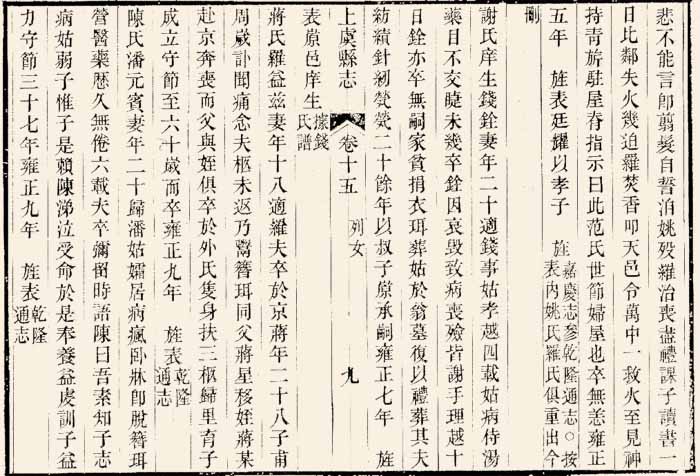 悲不能言卽翦髮自誓洎姚歿羅治喪盡禮課子讀書一
日比鄰失火幾迫羅焚香叩天邑令萬中一救火至見神
持靑旂駐屋脊指示曰此范氏世節婦屋也卒無恙雍正
五年 旌表廷耀以孝子 旌嘉慶志參乾隆通志○按表內姚氏羅氏俱重出今
刪
謝氏庠生錢銓妻年二十適錢事姑孝越四載姑病侍湯
藥目不交睫未幾卒銓因哀毀致病喪殮皆謝手理越十
日銓亦卒無嗣家貧捐衣珥葬姑於翁墓復以禮葬其夫
紡績針紉煢煢二十餘年以叔子原承嗣雍正七年 旌
上虞縣志 卷十五 列女 九
表原邑庠生據錢氏譜
蔣氏羅益茲妻年十八適羅夫卒於京蔣年二十八子甫
周歲訃聞痛念夫柩未返乃鬻簪珥同父蔣星移姪蔣某
赴京奔喪而父與姪俱卒於外氏隻身扶二柩歸里育子
成立守節至六十歲而卒雍正九年 旌表乾隆通志
陳氏潘元賓妻年二十歸潘姑孀居病瘋臥牀卽脫簪珥
營醫藥歷久無倦六載夫卒彌留時語陳曰吾素知子志
病姑弱子惟子是賴陳涕泣受命於是奉養益虔訓子益
力守節三十七年雍正九年 旌表乾隆通志